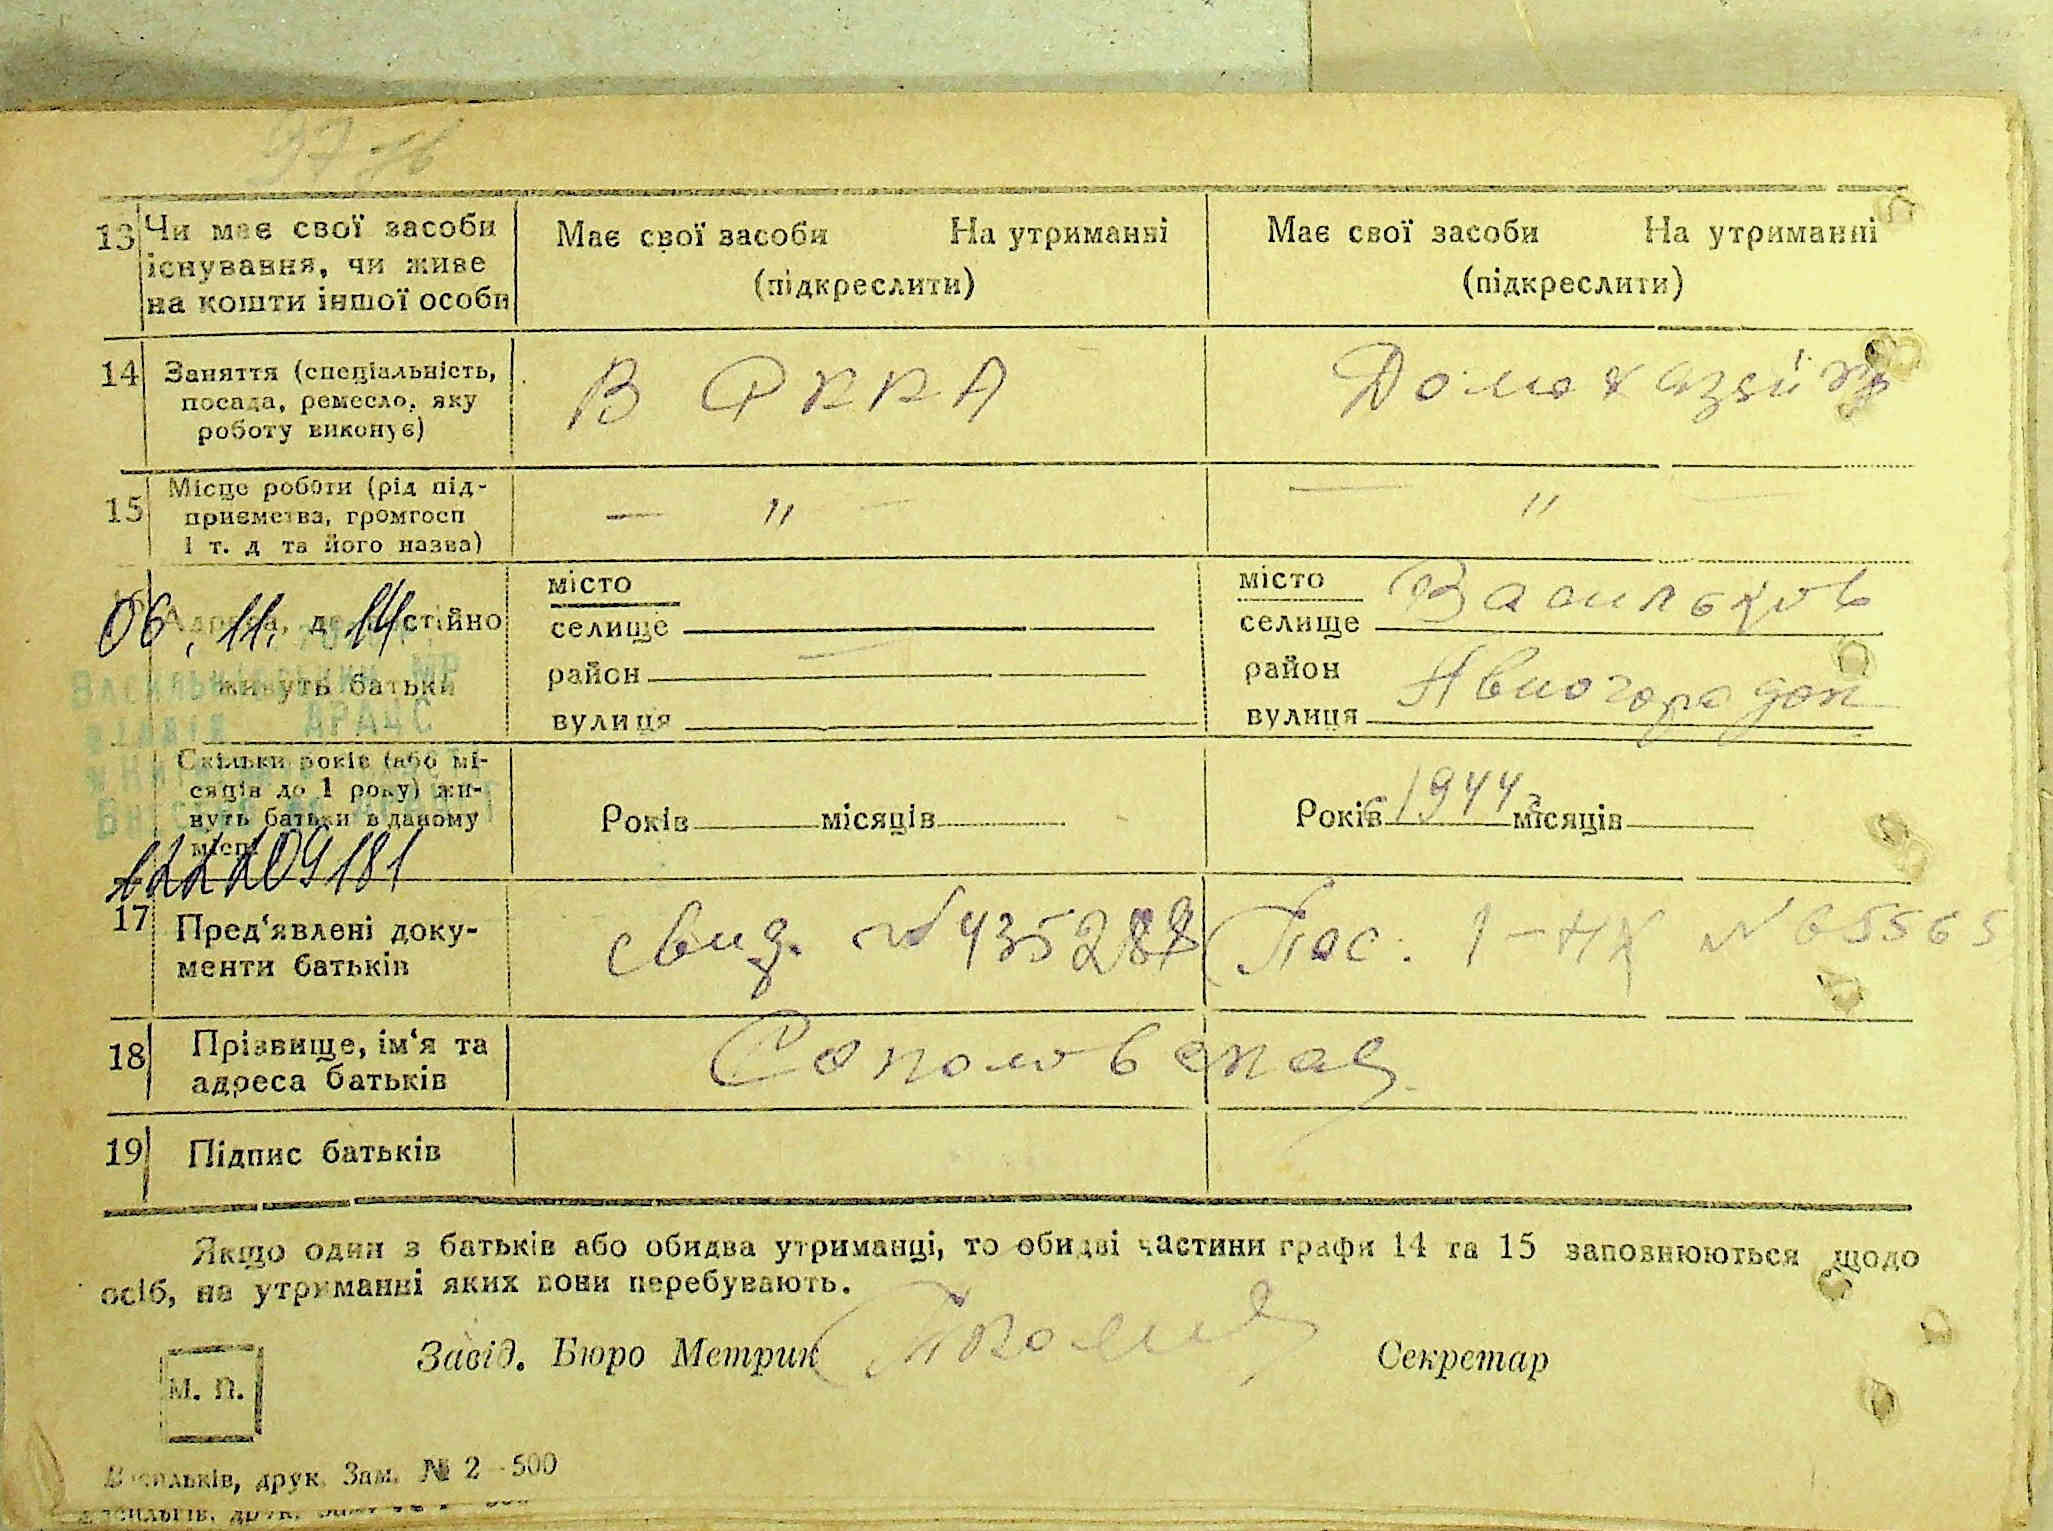 13 Чи має свої засоби існування, чи живе на кошти іншої особи
Має свої засоби На утриманні
(підкреслити)
Має свої засоби На утриманні
(підкреслити)
14 Заняття (спеціальність,
посада, ремесло, яку
роботу виконує)
В РККА
Домохазяйка
15 Місце роботи (рід під-
приємства, громгосп
і т. д та його назва)
— " —
— " —
06. 11. 14
Адреса, де постійно
живуть батьки
Васильківський МР
АРАЦС
місто
селище
район
вулиця
місто Васильков
селище
район
вулиця
Скільки років (або мі-
сяців до 1 року) жи-
вуть батьки в даному
місці
Років місяців
Років с 1944 місяців
17 Пред'явлені доку-
менти батьків
свид. №
Пас. №65565
18 Прізвище, ім'я та
адреса батьків
19 Підпис батьків
Якщо один з батьків або обидва утриманці, то обидві частини графи 14 та 15 заповнюються щодо
осіб, на утриманні яких вони перебувають.
Завід. Бюро Метрик
Секретар
М. П.
Васильків, друк. Зам. № 2-500